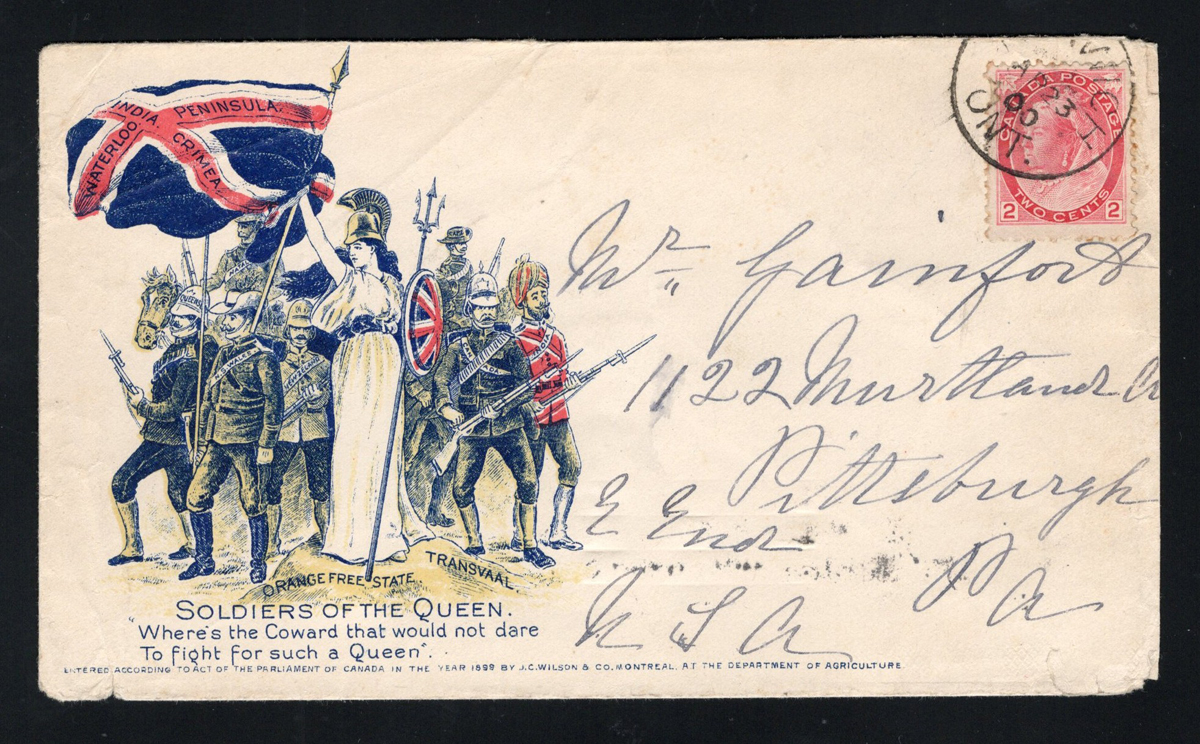 INDIA. PENINSULA.
WATERLOO. CRIMEA.
CANADA POSTAGE
TWO CENTS
2 2
23
00
ONT.
Mr Gainfort
1122 Murtland
Pittsburgh
E End Pa
U S A
QUEENS
INDIA
ORANGE FREE STATE. TRANSVAAL.
SOLDIERS OF THE QUEEN.
"Where's the Coward that would not dare
To fight for such a Queen".
ENTERED ACCORDING TO ACT OF THE PARLIAMENT OF CANADA IN THE YEAR 1899 BY J.C. WILSON & CO. MONTREAL, AT THE DEPARTMENT OF AGRICULTURE